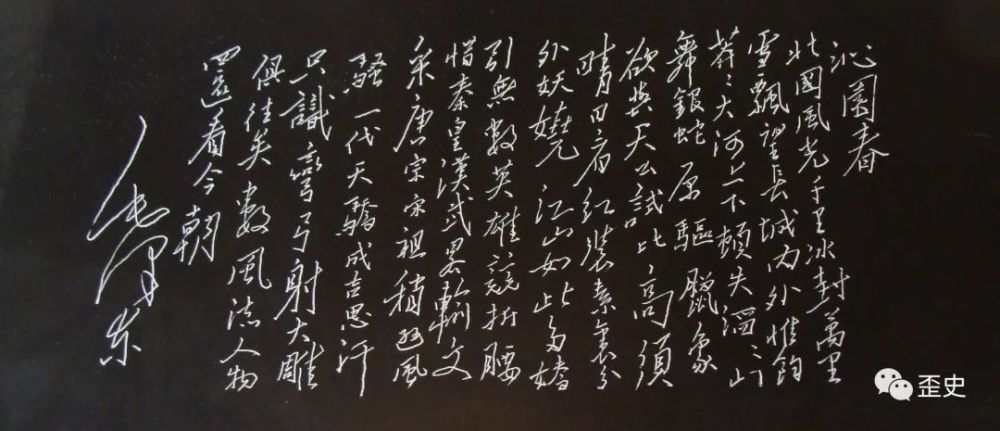 沁園春
北國風光千里冰封萬里
雪飄望長城内外惟餘
莽々大河上下頓失滔々山
舞銀蛇原驅臘象
欲與天公試比高須
晴日看红裝素裹分
外妖嬈江山如此多嬌
引無數英雄競折腰
惜秦皇漢武畧輸文
采唐宗宋祖稍遜風
騷一代天驕成吉思汗
只識彎弓射大雕
俱往矣數風流人物
還看今朝
毛澤东
歪史